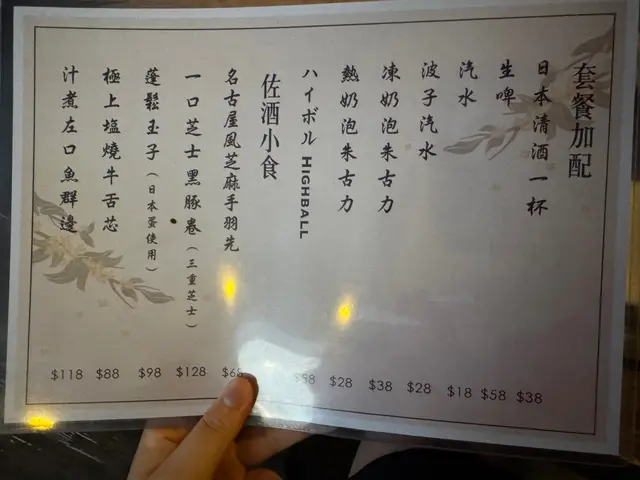 套餐加配
日本清酒一杯 $38
生啤 $58
汽水 $18
波子汽水 $28
凍奶泡朱古力 $38
熱奶泡朱古力 $28
ハイボル HIGHBALL
佐酒小食
名古屋風芝麻手羽先 $68
一口芝士黑豚卷（三重芝士） $128
蓬鬆玉子（日本蛋使用） $98
極上塩燒牛舌芯 $88
汁煮左口魚群邊 $118